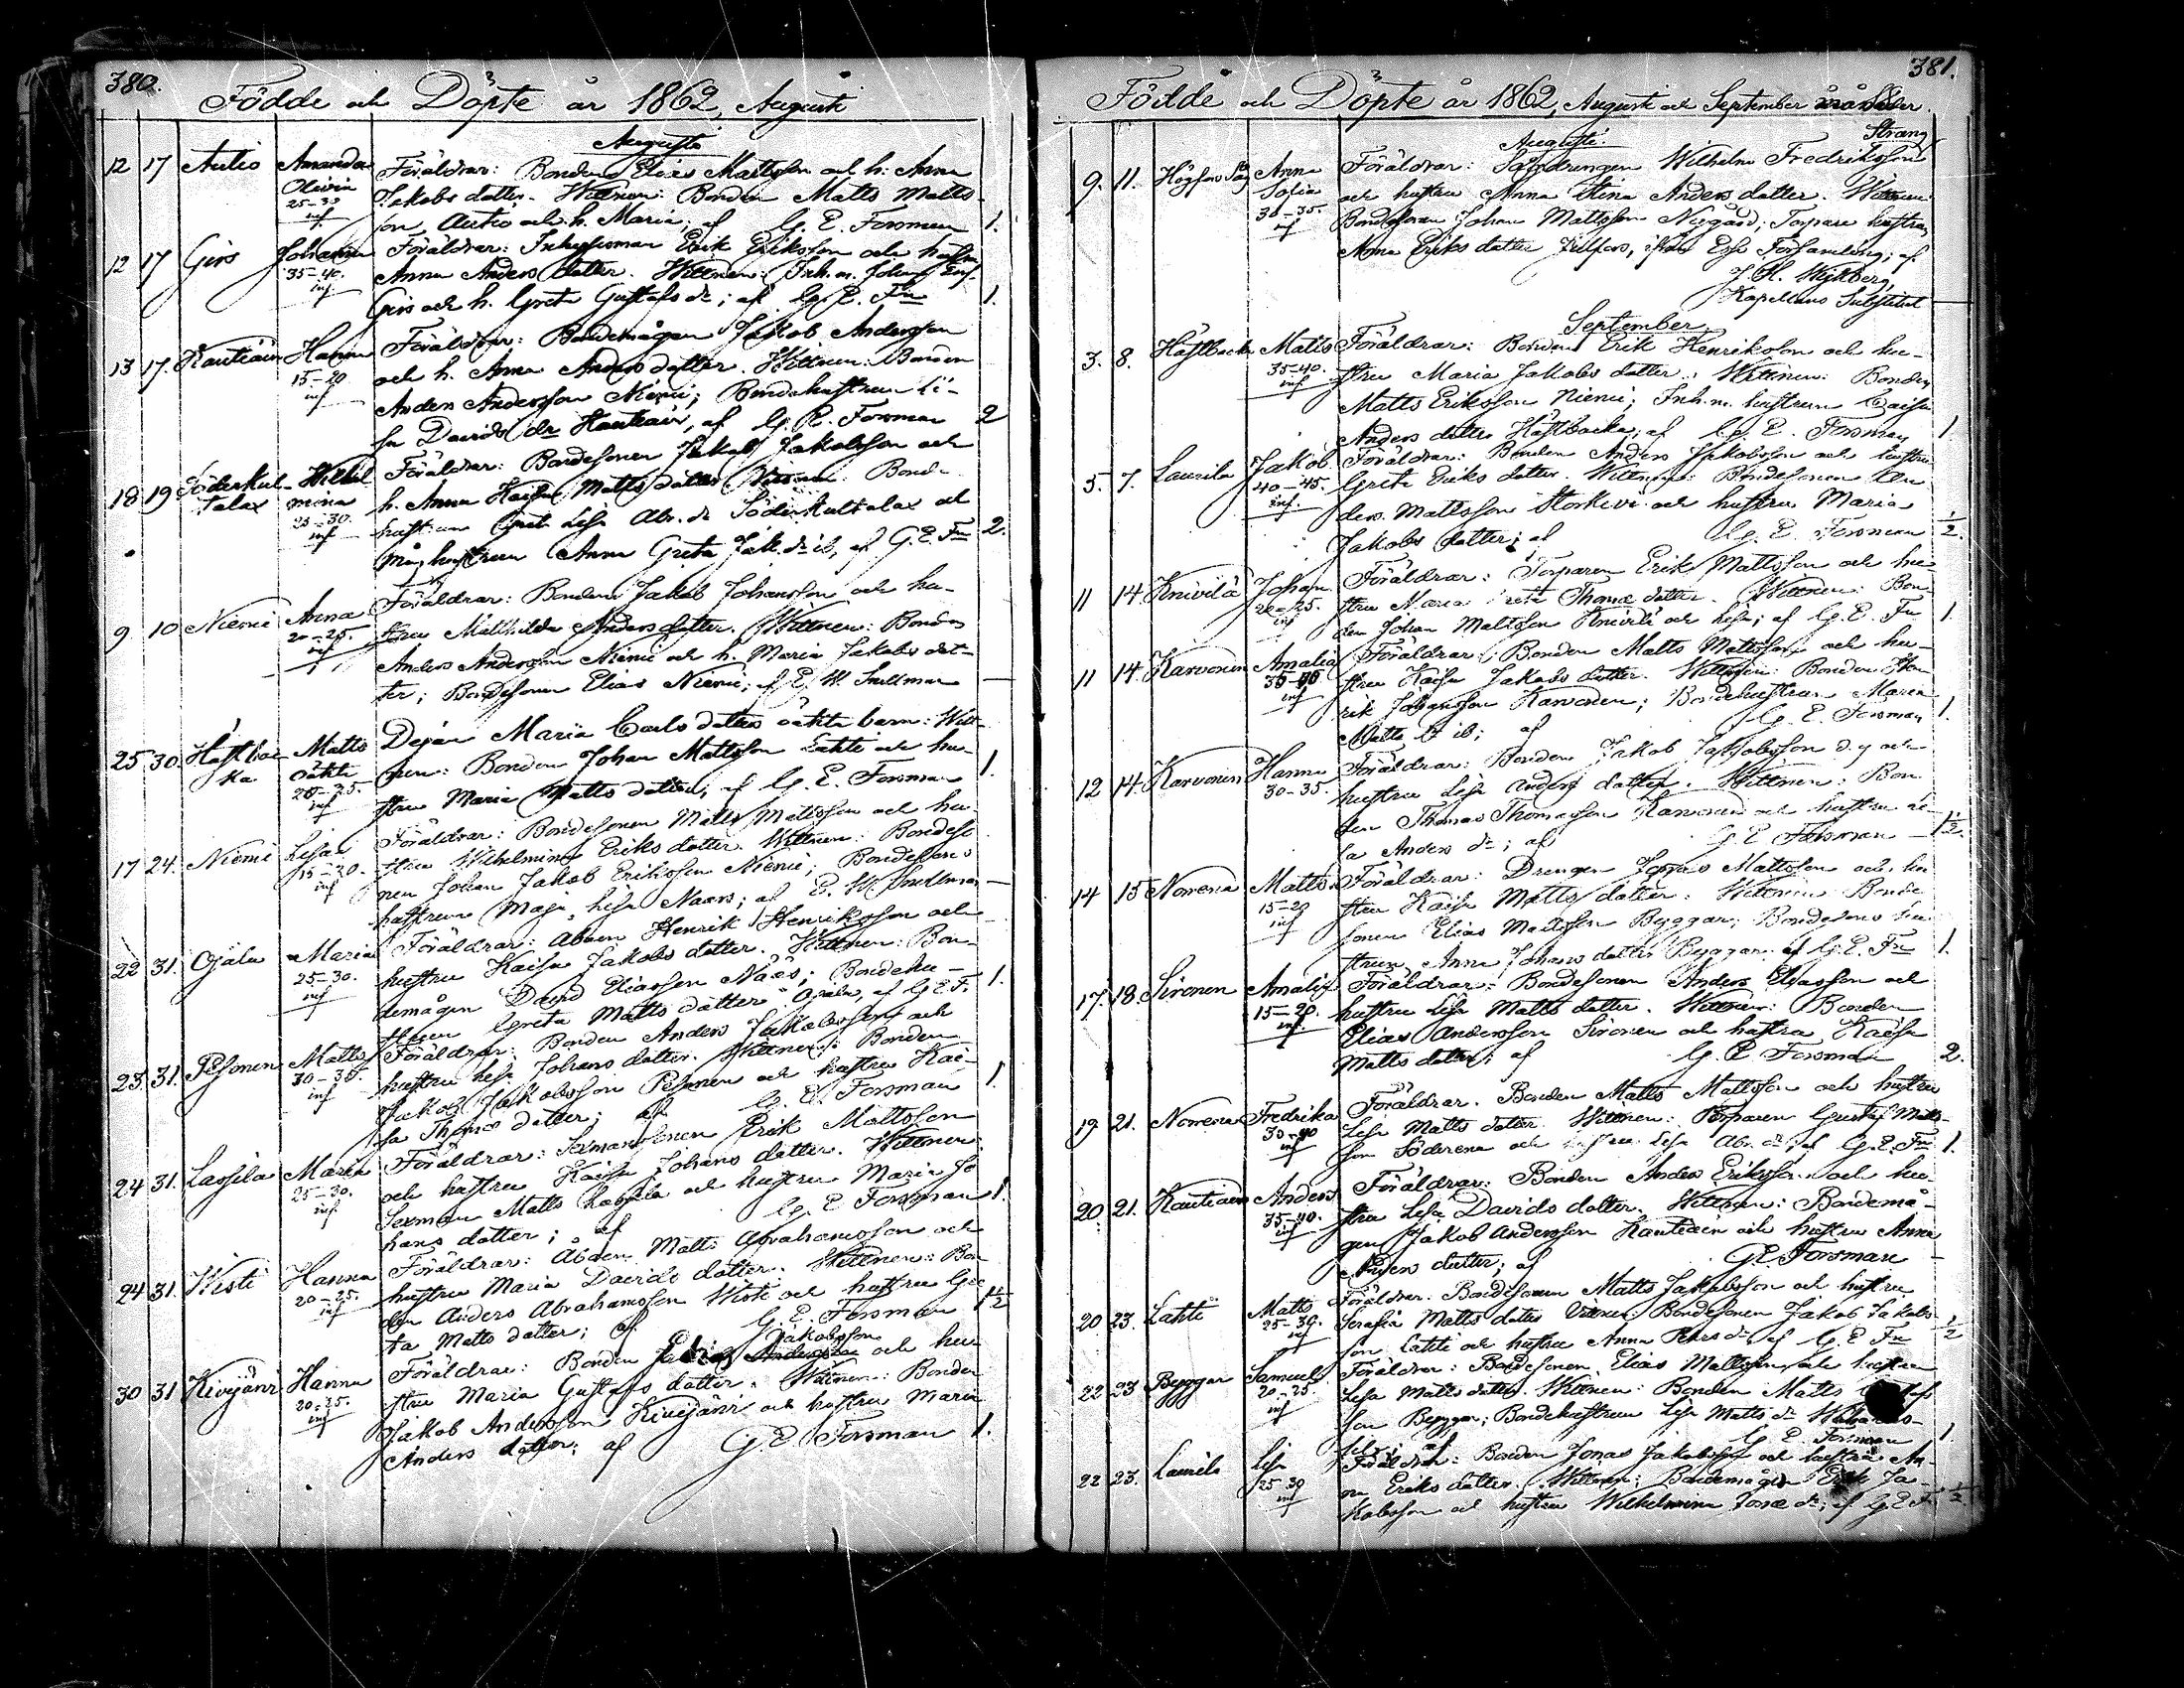 380.
Födde och Döpte år 1862, Augusti
Augusti
12 17 Autio Amanda Olivia 25-30 inf Föräldrar: Bonden Elias Mattsson och h. Anna
Jakobs dotter. Wittnen: Bonden Matts Matts-
son Autio och h. Maria; af G. E. Forsman 1.
12 17 Girs Johanna 35-40. inf Föräldrar: Inhysesman Erik Eriksson och hustru
Anna Anders dotter. Wittnen: Inh. m. Johan
Girs och h. Greta Gustafs dr; af G. E. Fn 1.
13 17. Kautiain Hanna 15-20 inf Föräldrar: Bondemågen Jakob Andersson
och h. Anna Anders dotter. Wittnen: Bonden
Anders Andersson Niemi; Bondehustrun Li-
sa Davids dr Kautiain, af G. E. Forsman 2
18 19 Söderkul-talax Wilhelmina 25-30. inf Föräldrar: Bondesonen Jakob Jakobsson och
h. Anna Kaisa Matts dotter Wittnen: Bonde-
hustrun Greta Lisa Abr. dr Söderkultalax och
måg hustrun Anna Greta Jak. dr ib, af G. E. Fn 2.
9 10 Niemi Anna 20-25. inf Föräldrar: Bonden Jakob Johansson och hu-
stru Mathilda Anders dotter. Wittnen: Bonden
Anders Andersson Niemi och h. Maria Jakobs dot-
ter; Bondesonen Elias Niemi; af E. W. Snellman
25 30. Hästbacka Matts oäkta 20-25. inf Dejan Maria Carls dotters oäkta barn: Witt-
nen: Bonden Johan Mattsson Lahti och hu-
stru Maria Matts dotter; af G. E. Forsman 1.
17 24. Niemi Lisa 15-20. inf Föräldrar: Bondesonen Matts Mattsson och hu-
stru Wilhelmina Eriks dotter. Wittnen: Bondeso-
nen Johan Jakob Eriksson Niemi; Bondesons
hustrun Maja Lisa Naars; af E. W. Snellman
22 31. Ojala Maria 25-30. inf Föräldrar: Aboen Henrik Henriksson och
hustru Kaisa Jakobs dotter. Wittnen: Bon-
demågen David Eliasson Nääs; Bondehu-
strun Greta Matts dotter Ojala, af G. E. F. 1.
23 31. Pesonen Matts 30-35. inf Föräldrar: Bonden Anders Jakobsson och
hustru Lisa Johans dotter. Wittnen: Bonden
Jakob Jakobsson Pesonen och hustru Kai-
sa Thomæ dotter; af G. E. Forsman 1.
24 31. Lassila Maria 25-30. inf Föräldrar: Sexmansonen Erik Mattsson
och hustru Kaisa Johans dotter. Wittnen:
Sexman Matts Lassila och hustru Maria Jo-
hans dotter; af G. E. Forsman 1.
24 31. Wisti Hanna 20-25. inf Föräldrar: Aboen Matts Abrahamsson och
hustru Maria Davids dotter. Wittnen: Bon-
den Anders Abrahamsson Wisti och hustru Gre-
ta Matts dotter; af G. E. Forsman 1 1/2
30 31 Kivijärvi Hanna 20-25. inf Föräldrar: Bonden Elias Jakobsson och hu-
stru Maria Gustafs dotter. Wittnen: Bonden
Jakob Andersson Kivijärvi och hustru Maria
Anders dotter; af G. E. Forsman 1.
381.
Födde och Döpte år 1862, Augusti och September månader.
Augusti.
Strang
9. 11. Högfors såg Anna Sofia 30-35. inf Föräldrar: Wilhelm Fredriksson
och hustru Anna Stina Anders dotter. Wittnen:
Bondesonen Johan Mattsson Nygård; Torpare hustrun
Anna Eriks dotter ifrån Esse Församling; af
J. H. Wijkberg,
Kapellans Substitut
September
3. 8. Hästbacka Matts 35-40. inf Föräldrar: Bonden Erik Henriksson och hu-
stru Maria Jakobs dotter. Wittnen: Bonden
Matts Eriksson Niemi; Inh. m. hustrun Caisa
Anders dotter Hästbacka, af G. E. Forsman 1
5. 7. Laurila Jakob 40-45. inf. Föräldrar: Bonden Anders Jakobsson och hustru
Greta Eriks dotter. Wittnen: Bondesonen An-
ders Mattsson Storkivi och hustru Maria
Jakobs dotter; af G. E. Forsman 1/2.
11 14. Knivilä Johan 20-25. inf Föräldrar: Torparen Erik Mattsson och hu-
stru Maria Greta Thomæ dotter. Wittnen: Bon-
den Johan Mattsson Knivilä och Lisa; af G. E. Fn 1.
11 14. Karvonen Amalia inf Föräldrar: Bonden Matts Mattsson och hu-
stru Kaisa Jakobs dotter. Wittnen: Bonden Hen-
rik Johansson Karvonen; Bondehustrun Maria
Matts dr ib; af G. E. Forsman 1.
12 14. Karvonen Hanna 30-35. Föräldrar: Bonden Jakob Jakobsson d. y och
hustru Lisa Anders dotter. Wittnen: Bon-
den Thomas Thomasson Karvonen och hustru Li-
sa Anders dr; af G. E. Forsman 1 1/2.
14 15 Norrena Matts 15-20 inf Föräldrar: Drengen Jesper Mattsson och hu-
stru Kaisa Matts dotter: Wittnen: Bonde-
sonen Elias Mattsson Byggar; Bondesons hu-
strun Anna Johans dotter Byggar. af G. E. Fn 1.
17. 18. Sironen Amalia 15-20. inf. Föräldrar: Bondesonen Anders Eliasson och
hustru Lisa Matts dotter. Wittnen: Bonden
Elias Andersson Sironen och hustru Kaisa
Matts dotter; af G. E. Forsman 2.
19 21. Norrena Fredrika 30-40 inf Föräldrar. Bonden Matts Mattsson och hustru
Lisa Matts dotter Wittnen: Torparen Gustaf Matts-
son Söderena och hustru Lisa Abr. dr; af G. E. Fn 1.
20. 21. Kautiain Anders 35-40. inf Föräldrar: Bonden Anders Eriksson och hu-
stru Lisa Davids dotter. Wittnen: Bondemå-
gen Jakob Andersson Kautiain och hustru Anna
Anders dotter; af G. E. Forsman
20 23. Lahti Matts 25-30. inf Föräldrar. Bondesonen Matts Jakobsson och hustru
Serafia Matts dotter Wittnen Bondesonen Jakob Jakobs-
son Lahti och hustru Anna Pehrs dr af G. E. Fn 1/2
22 23 Byggar Samuel 20-25. inf Föräldrar: Bondesonen Elias Mattsson och hustru
Lisa Matts dotter. Wittnen: Bonden Matts
son Byggar; Bondehustrun Lisa Matts dr
af G. E. Forsman 1.
22 23. Laurila Lisa 25-30 inf Föräldrar: Bonden Jonas Jakobsson och hustru An-
na Eriks dotter. Wittnen: Bondemågen Erik Ja-
kobsson och hustru Wilhelmina Jonæ dr; af G. E. F. 1/2.